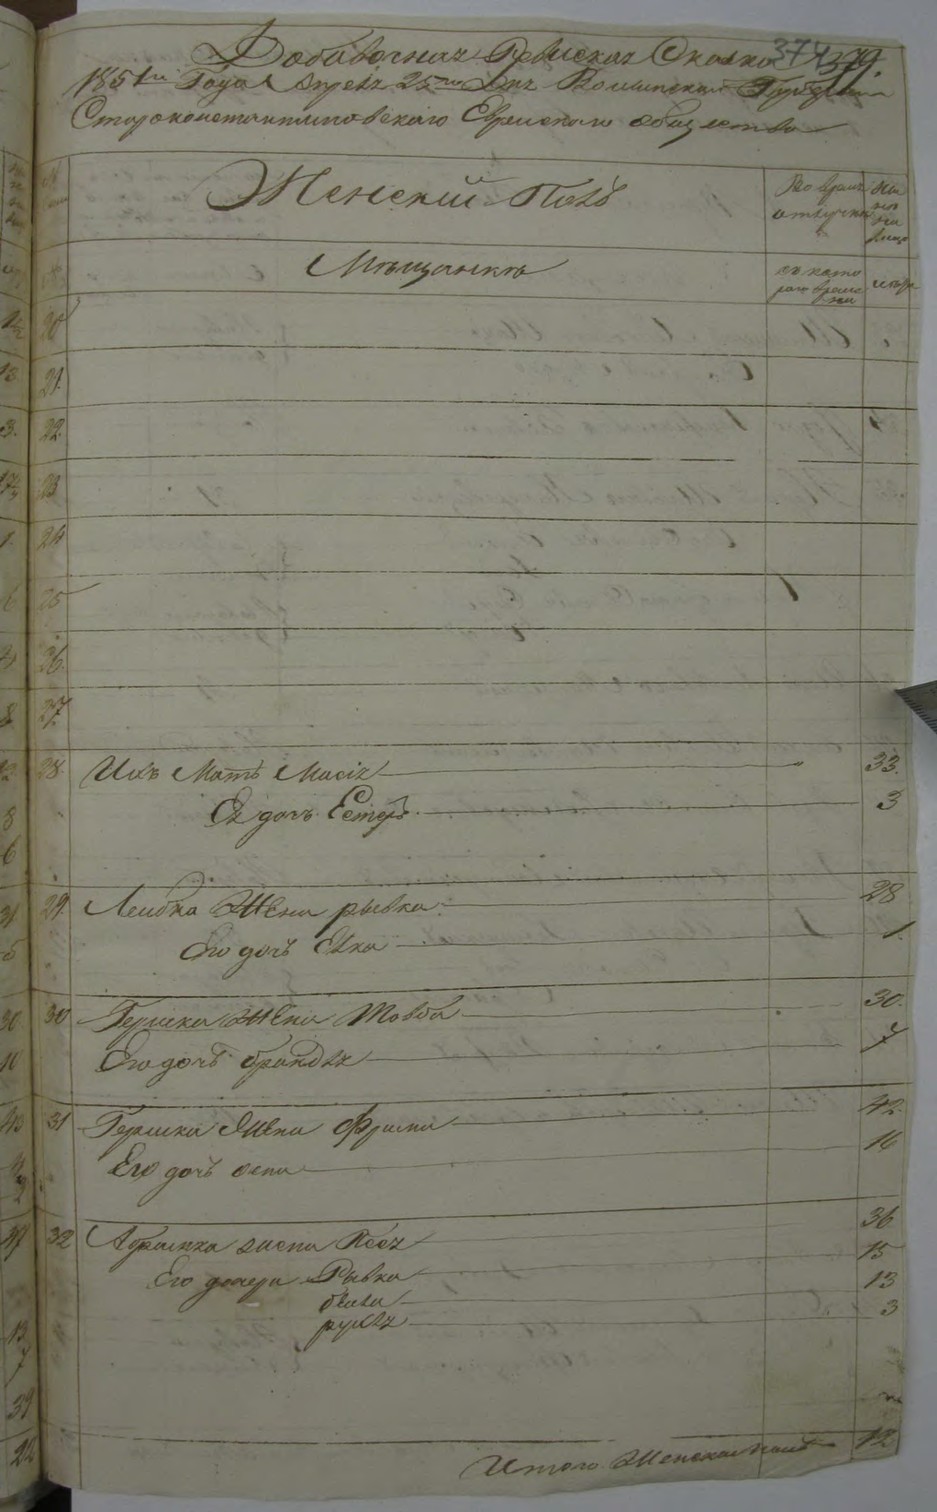 Добавочная Ревизская Сказка 374 379.
1851го Года Апреля 25го Дня Волынская Губерния
Староконстантиновскаго Еврейскаго общества
Женский Полъ
Во врем. отлучки
На лицо
Мещанкѣ
съ кото раго време ни
лета
20
21.
22.
23
24
25
26.
27.
28. Ихъ Мать Мася 33.
Ея дочь Естеръ 3
29. Лейбка Жена рывка. 28
Его дочь Ейка 1.
30 Гершка Жена Товба 30.
Его дочь брандля 7
31 Гершка Жена Фрима 42.
Его дочь сепа 16
32 Абрамка жена Песя 36
Его дочери Рывка 15
бейла 13
рухля 3
Итого Женска пола 12